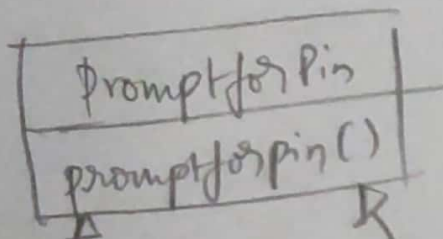 PromptforPin
promptforpin()